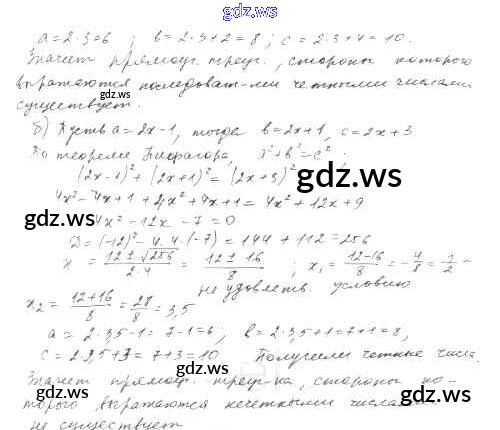 gdz.ws
a = 2·3 = 6 ; b = 2·3+2 = 8 ; c = 2·3+4 = 10.
Значит прямоуг. треуг., стороны которого
выражаются последоват-ми четными числами
существует.
gdz.ws gdz.ws
б) Пусть a = 2x-1, тогда b = 2x+1, c = 2x+3
По теореме Пифагора,
(2x-1)² + (2x+1)² = (2x+3)²
gdz.ws
4x² - 4x + 1 + 4x² + 4x + 1 = 4x² + 12x + 9
gdz.ws
4x² - 12x - 7 = 0
D = (-12)² - 4·4·(-7) = 144 + 112 = 256
gdz.ws
x = (12 ± √256)/(2·4) = (12 ± 16)/8 ; x₁ = (12-16)/8 = -4/8 = 1/2 -
не удовлетв. условию
x₂ = (12+16)/8 = 28/8 = 3,5
gdz.ws
a = 2·3,5-1 = 7-1 = 6 ; b = 2·3,5+1 = 7+1 = 8,
c = 2·3,5+3 = 7+3 = 10 Получили четные числа.
Значит прямоуг. треуг-ка, стороны ко-
торого выражаются нечетными числами
не существует
gdz.ws gdz.ws